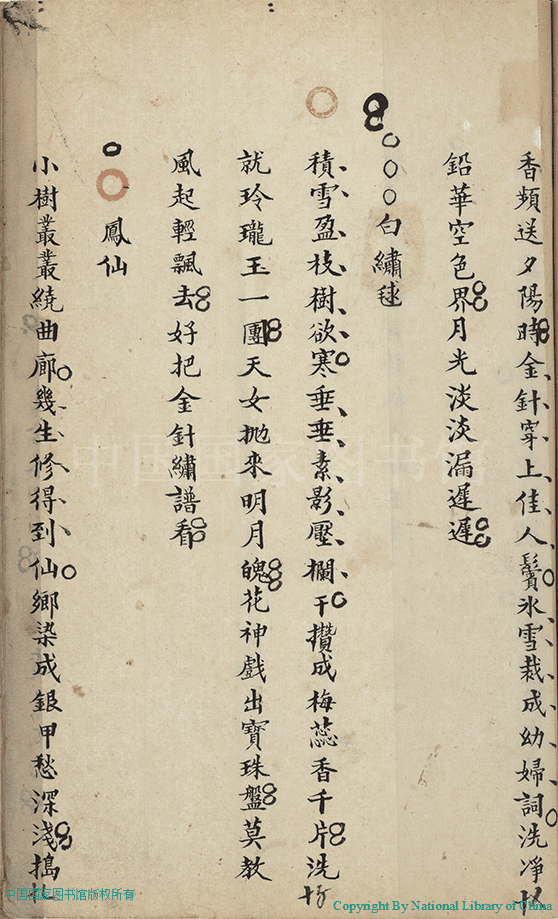 香頻送夕陽時金針穿上佳人鬢氷雪裁成幼婦詞洗凈
鉛華空色界月光淡淡漏遲遲
白繡毬
積雪盈枝樹欲寒垂垂素影壓欄干攢成梅蕊香千片洗
就玲瓏玉一團天女拋來明月魄花神戲出寶珠盤莫教
風起輕飄去好把金針繡譜看
鳳仙
小樹叢叢繞曲廊幾生修得到仙鄉染成銀甲愁深淺搗
中国国家图书馆
中国国家图书馆版权所有
Copyright By National Library of China